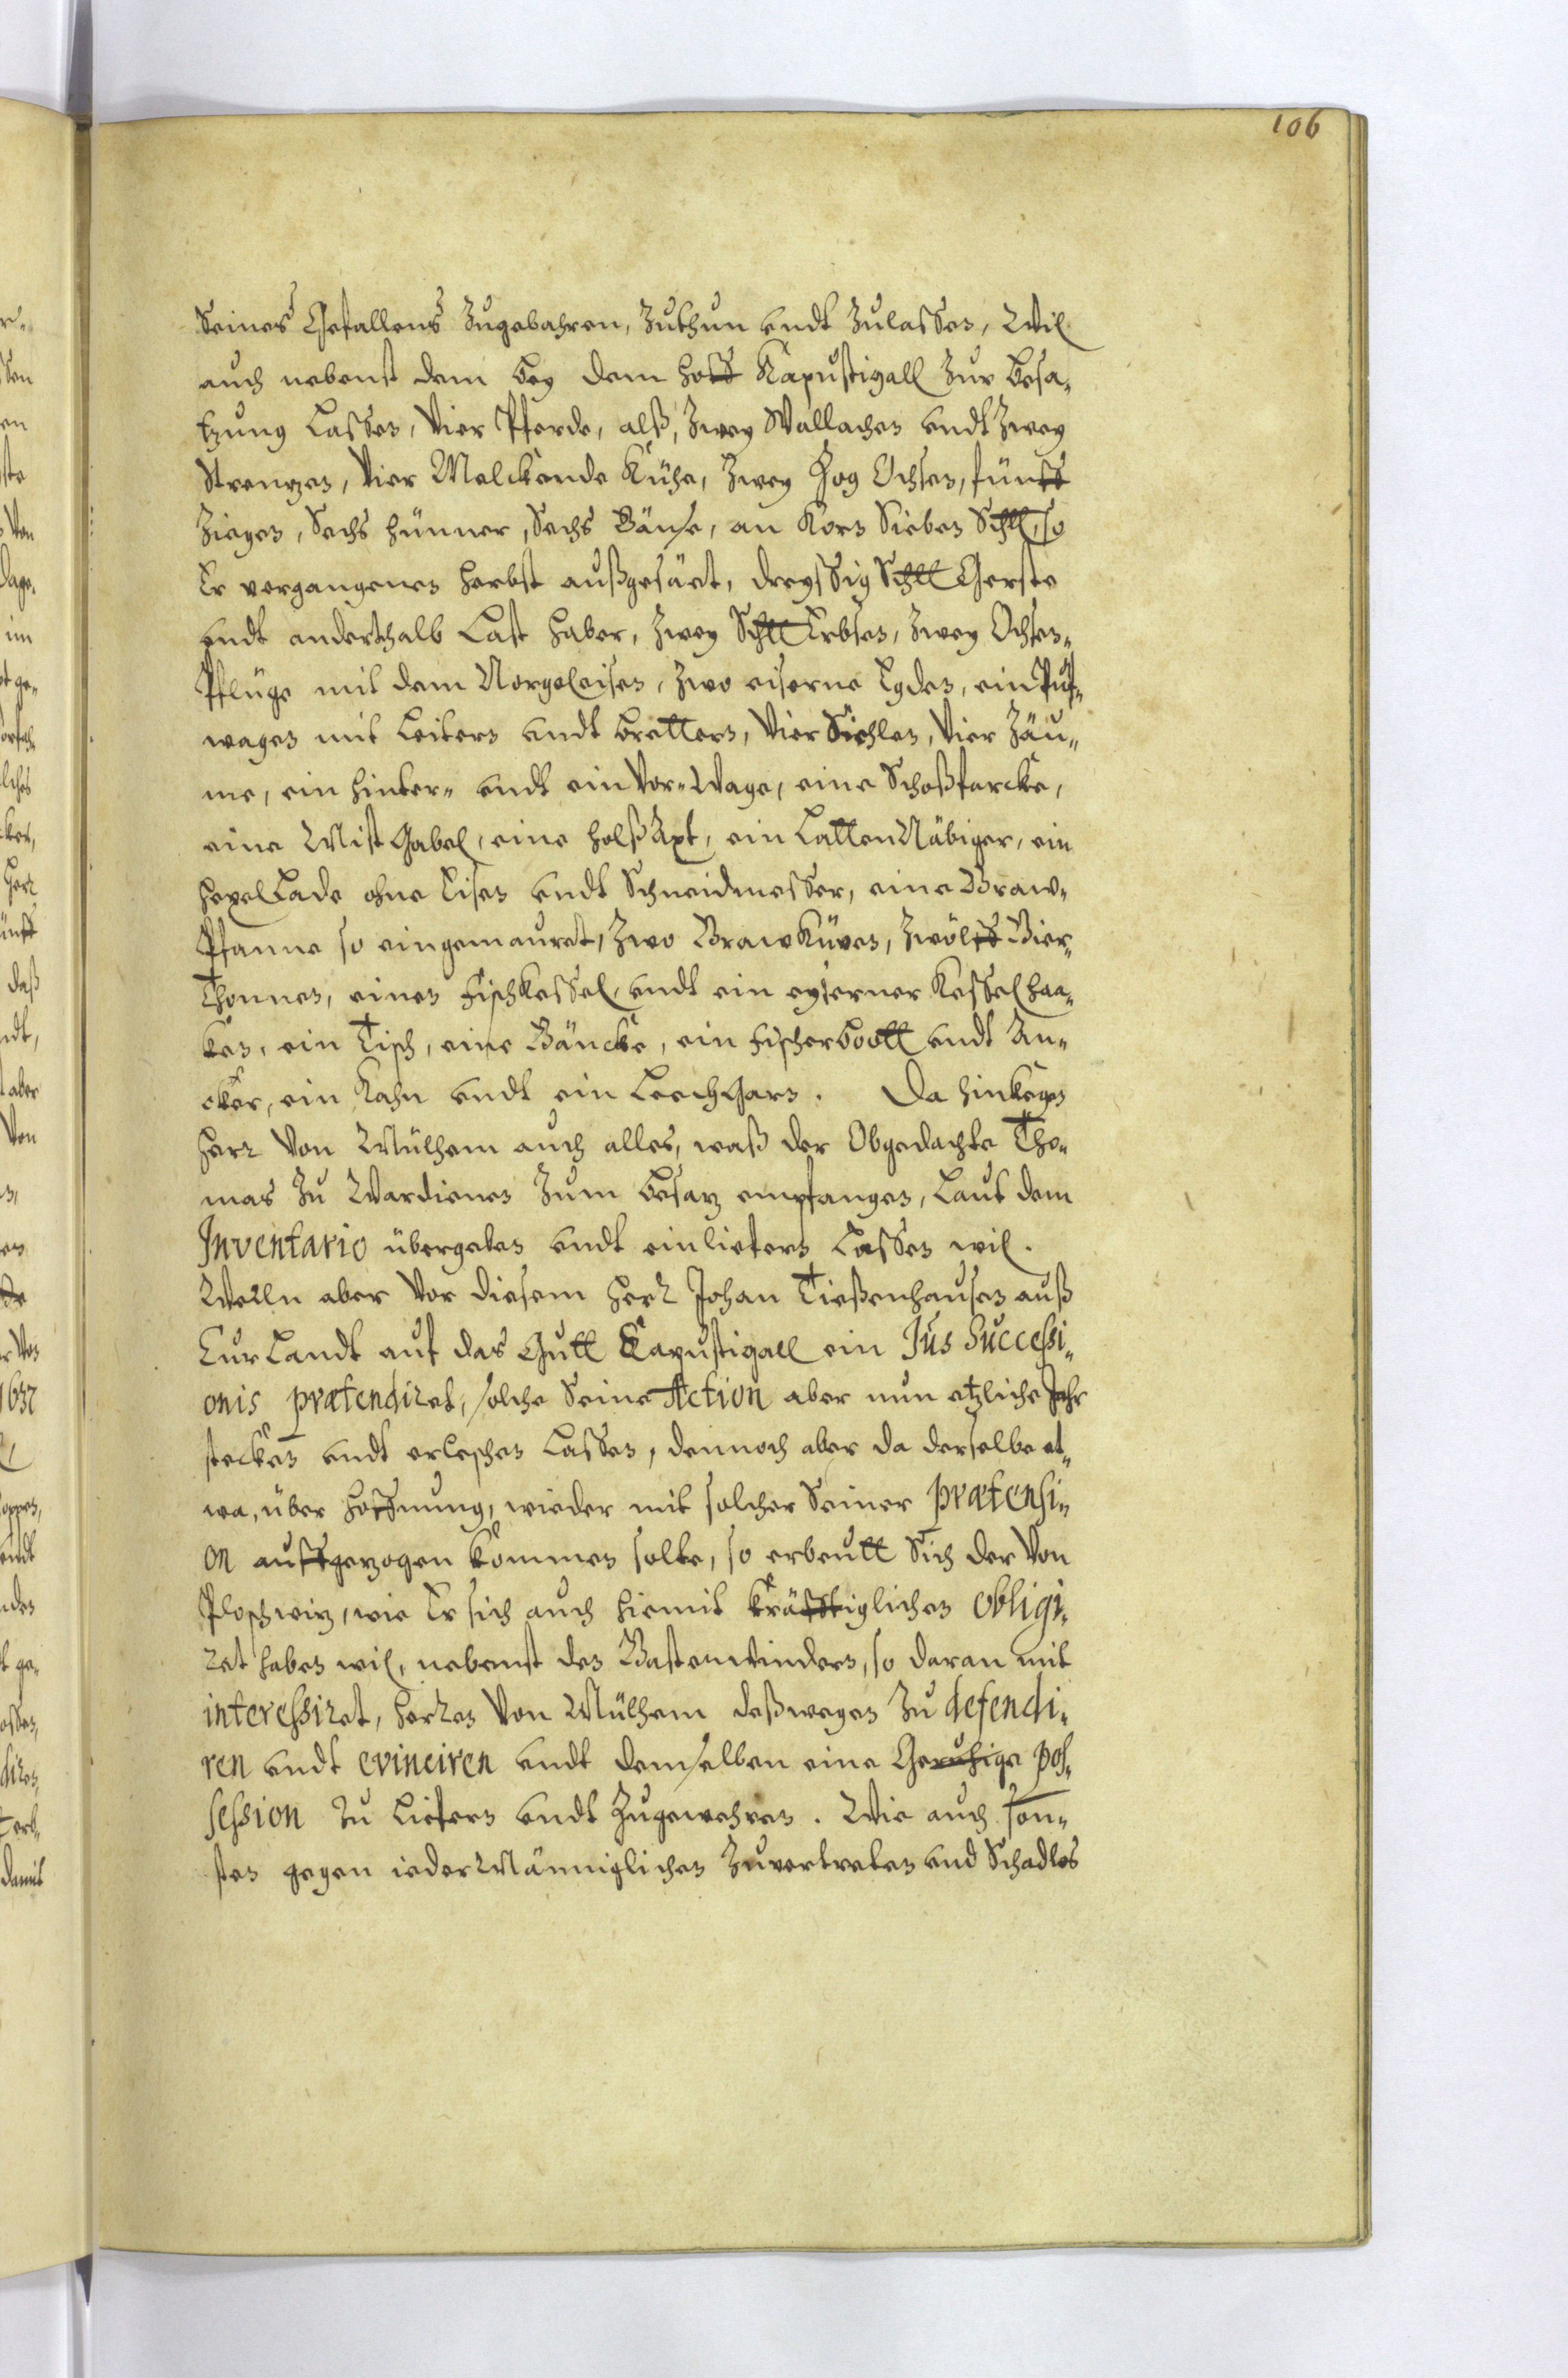 106
Seines Gefallens Zugebahren, Zuthun undt Zulassen, Wil
auch nebenst dem bey dem hoff Kapustigall Zur besa¬
tzung Lassen, Vier Pferde, alß, Zwey Wallachen undt Zwey
Strentzen, Vier Melckende Kühe, Zwey Zog Ochsen, fünff
Ziegen, Sechs hünner, Sechs Gänse, an Korn Sieben Schll, so
Er vergangenen herbst außgesäet, dreyssig Schll Gerste
undt anderthalb Last haber, Zwey Schll Erbsen, Zwey Ochsen¬
Pflüge mit dem Norgeleisen, Zwo eiserne Egden, ein Puf¬
wagen mit Leitern undt brettern, Vier Siehlen, Vier Zäu¬
me, ein hinter¬ undt ein Vor¬Wage, eine Schoßforcke,
eine Mist Gabel, eine holß Axt, ein Latten Näbiger, ein
hexelLade ohne Eisen undt Schneidmesser, eine Braw¬
Pfanne so eingemauret, Zwo Braw Küven, Zwölff Bier¬
Thonnen, einen Fischkessel, undt ein eyserner Kesselhaa¬
ken, ein Tisch, eine Bäncke, ein Fischerboott undt An¬
cker, ein Kahn undt ein Leech Garn. Da hinkegen
herr Von Mülhem auch alles, waß der Obgedachte Tho¬
mas Zu Wardienen Zum besatz empfangen, Laut dem
Inventario übergeben undt einliefern Lassen wil.
Weiln aber Vor diesem herr Johan Tießenhausen auß
CurLandt auf das Gutt Capustigall ein Jus Successi¬
onis prætendiret, solche Seine Action aber nun etzliche Jahr
stecken undt erleschen Lassen, dennoch aber da derselbe et¬
wa, über hoffnung, wieder mit solcher Seiner prætensi¬
on auffgezogen kommen solte, so erbeutt Sich der Von
Ploschwitz, wie Er sich auch hiemit kräfftiglichen obligi¬
ret haben wil, nebenst den Bastenwindern, so daran mit
interessiret, herren Von Mülhem deßwegen Zu defendi¬
ren undt evinciren undt demselben eine Geruhige pos¬
session Zu Liefern undt Zugewehren. Wie auch son¬
sten gegen ieder Männiglichen Zuvertreten und Schadlos